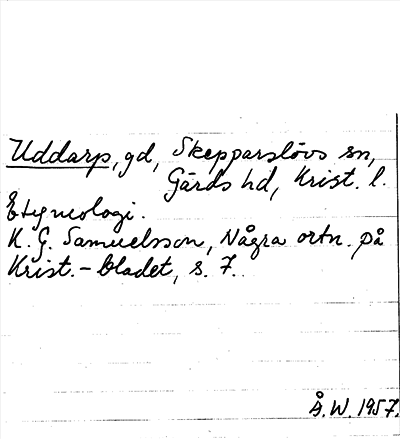 Uddarp, gd, Skepparslövs sn,
Gärds hd, Krist. l.
Etymologi.
K. G. Samuelsson, Några ortn. på
Krist.-bladet, s. 7.
Å. W. 1957.